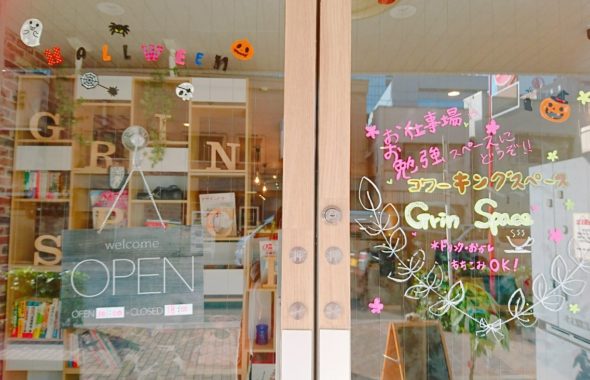 HALLWEEN
GRIN
SPACE
welcome
OPEN
OPEN
-CLOSED
お仕事場
お勉強スペースに
どうぞ!!
コワーキングスペース
Grin Space
*ドリンク・おかし
もちこみOK!